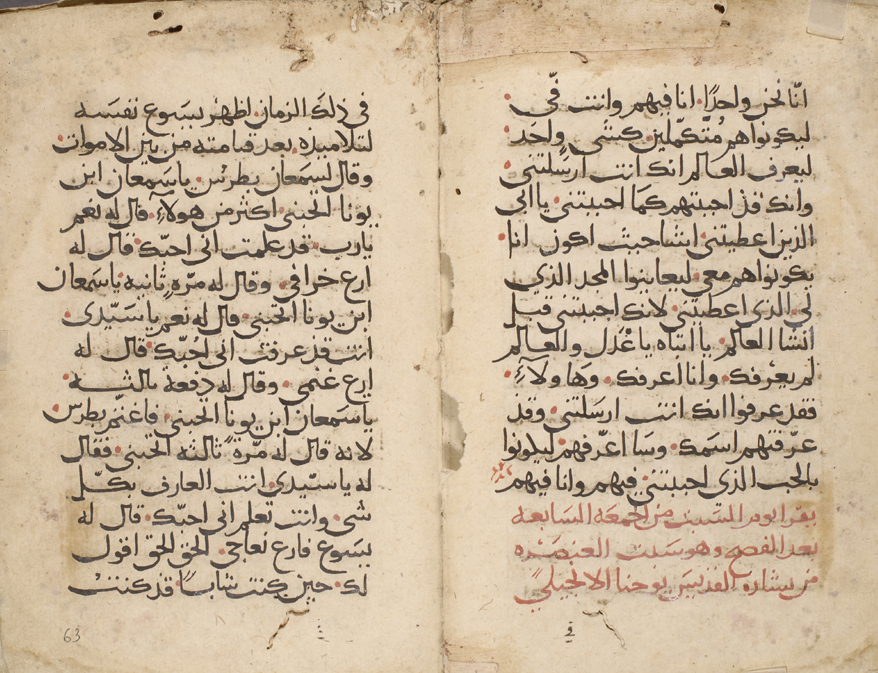 انّا نحن واحدًا. انا فيهم وانت فّي
ليكونوا هم مُتكمّلين كشي واحد.
ليعرف العالم انك انت ارسَلتني.
وانك قد احببتهم كما احببتني. يا ابي
الذين اعطيتني انشا حيث اكون انا.
يكونوا هم معي ليعاينوا المجد الذي
لي. الذي اعطيتني لانك احببتني قبل
انشا العالم. يا ابتاه يا عَدل والعالم
لم يعرفك. وانا اعرفك. وهاولآءِ.
فقد عرفوا انك انت ارسَلتني. وقد
عرّفتهم اسمك. وسَا اعرّفهم. ليكونوا
بالحب الذي احببتني فيهم وانا فيهم
يقرا يوم السَبت من الجمعه السَابعه
بعد الفصح وهو سَبت العنصَره
من بشاره القديس يوحنا الانجيلي
في ذلك الزمان. اظهر يسَوع نفسَه
لتلاميذه. بعد قيامته من بين الاموات.
وقال لسمعان بطرس. يا سَمعان ابن
يونا اتحبني. اكثر من هولآءِ. قال له نعم
يا رب. قد علمت اني احبّك. قال له
ارع خرافي. وقال له مرّه ثانيه. يا سَمعان
ابن يونا اتحبني. قال له نعم يا سَيّدي.
انت قد عرفت اني اُحبّك. قال له
ارع غنمي. وقال له دفعة ثالثه.
يا سَمعان ابن يونا اتحبني. فاغتم بطرس.
لانه قال له مرّة ثالثه اتحبني. فقال
له يا سيّدي. انت العارف بكل
شي. وانت تعلم اني احبّك. قال له
يسَوع فارع نعاجي. الحق الحق اقول
لك. حين كنت شابًا. قد كنت
63